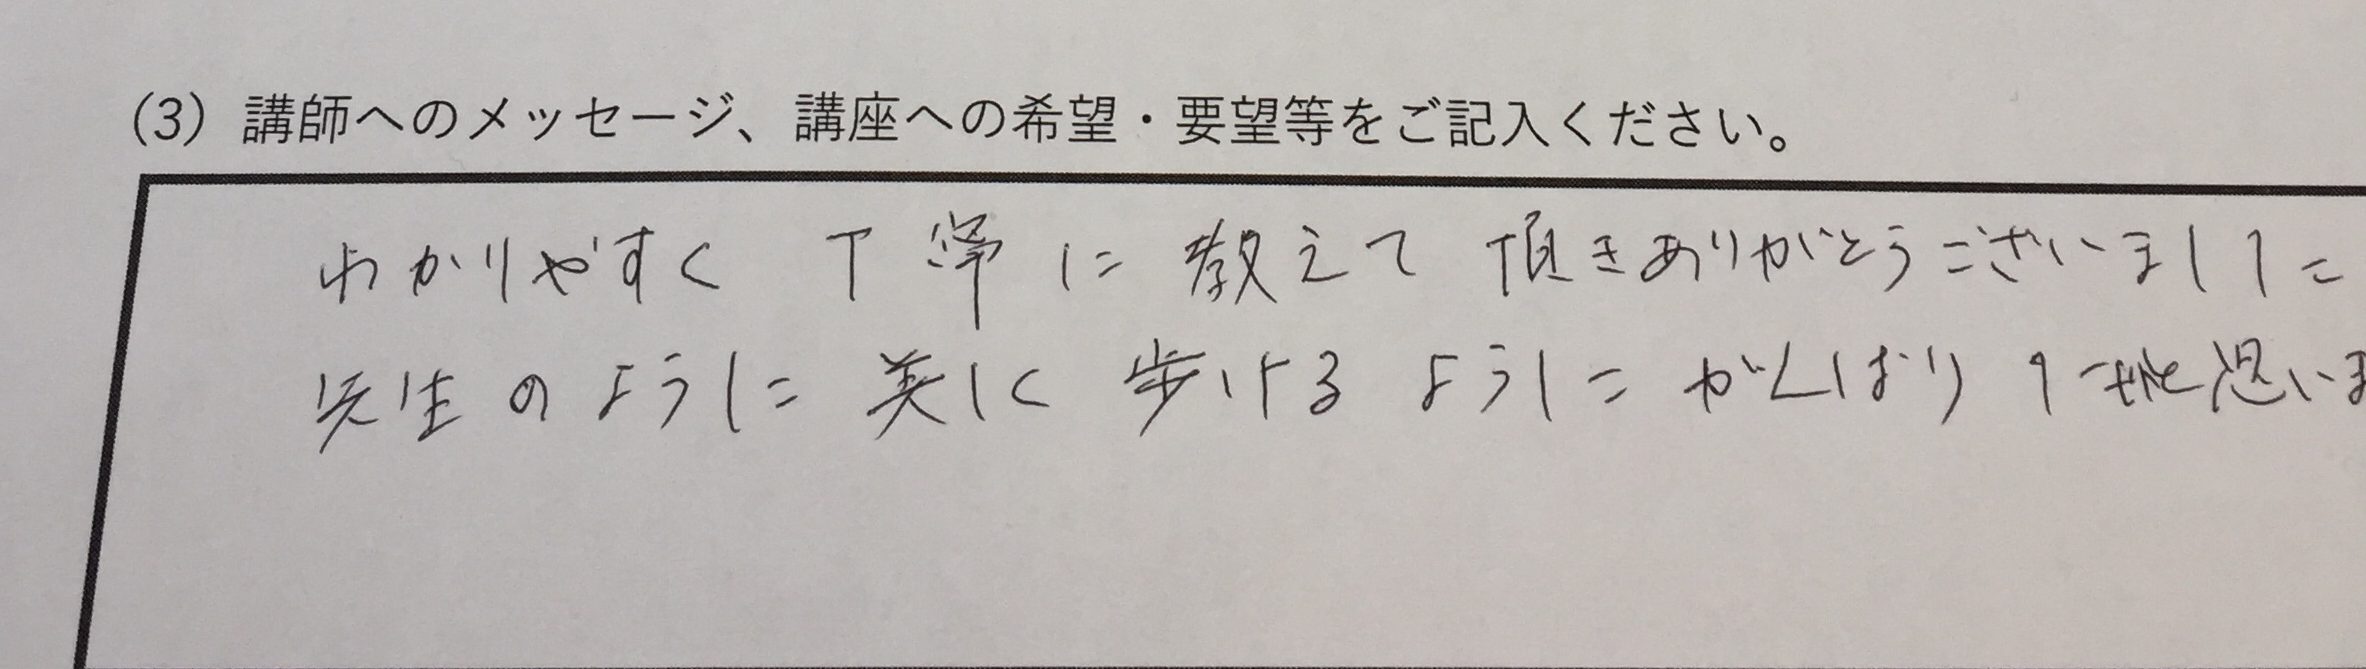 (3) 講師へのメッセージ、講座への希望・要望等をご記入ください。
わかりやすく 丁寧に 教えて 頂きありがとうございました
先生のように 美しく 歩けるように がんばり たいと思いま